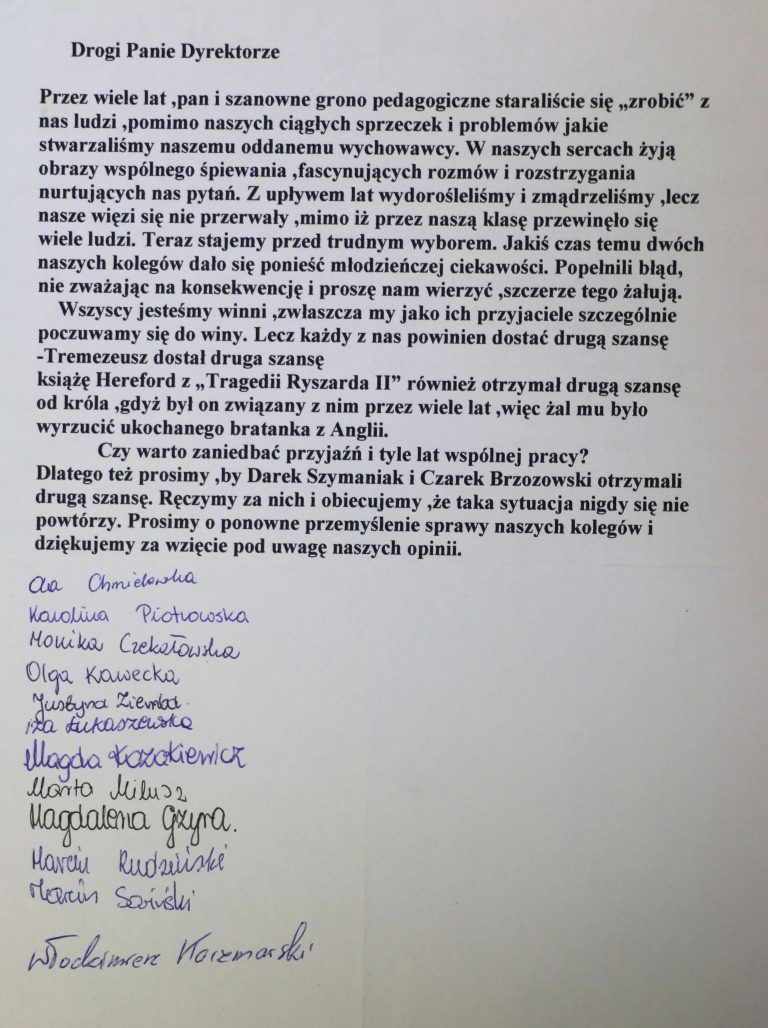 Drogi Panie Dyrektorze
Przez wiele lat ,pan i szanowne grono pedagogiczne staraliście się „zrobić” z
nas ludzi ,pomimo naszych ciągłych sprzeczek i problemów jakie
stwarzaliśmy naszemu oddanemu wychowawcy. W naszych sercach żyją
obrazy wspólnego śpiewania ,fascynujących rozmów i rozstrzygania
nurtujących nas pytań. Z upływem lat wydorośleliśmy i zmądrzeliśmy ,lecz
nasze więzi się nie przerwały ,mimo iż przez naszą klasę przewinęło się
wiele ludzi. Teraz stajemy przed trudnym wyborem. Jakiś czas temu dwóch
naszych kolegów dało się ponieść młodzieńczej ciekawości. Popełnili błąd,
nie zważając na konsekwencję i proszę nam wierzyć ,szczerze tego żałują.
Wszyscy jesteśmy winni ,zwłaszcza my jako ich przyjaciele szczególnie
poczuwamy się do winy. Lecz każdy z nas powinien dostać drugą szansę
-Tremezeusz dostał druga szansę
książę Hereford z „Tragedii Ryszarda II” również otrzymał drugą szansę
od króla ,gdyż był on związany z nim przez wiele lat ,więc żal mu było
wyrzucić ukochanego bratanka z Anglii.
Czy warto zaniedbać przyjaźń i tyle lat wspólnej pracy?
Dlatego też prosimy ,by Darek Szymaniak i Czarek Brzozowski otrzymali
drugą szansę. Ręczymy za nich i obiecujemy ,że taka sytuacja nigdy się nie
powtórzy. Prosimy o ponowne przemyślenie sprawy naszych kolegów i
dziękujemy za wzięcie pod uwagę naszych opinii.
Chmielewska
Karolina Piotrowska
Monika Czekałowska
Olga Kawecka
Justyna
Iza Łukaszewska
Magda Kozakiewicz
Marta Milusz
Magdalena Gzyra.
Marcin Rudziński
Marcin
Włodzimierz Kaczmarski